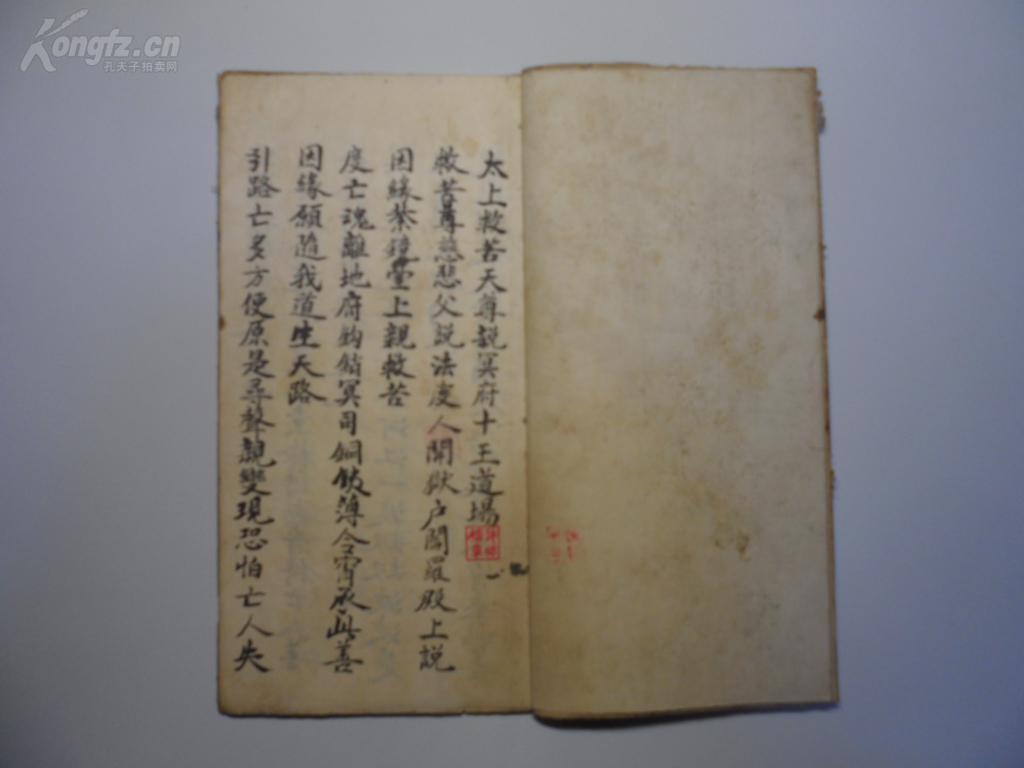 太上救苦天尊説冥府十王道場
救苦尊慈悲父説法度人開獄户閻羅殿上説
因緣業鏡臺上親救苦
度亡魂離地府鈎銷冥司銅板簿今宵承此善
因緣願隨我道生天路
引路亡多方便原是尋聲親變現恐怕亡人失
Kongfz.cn
孔夫子拍卖网